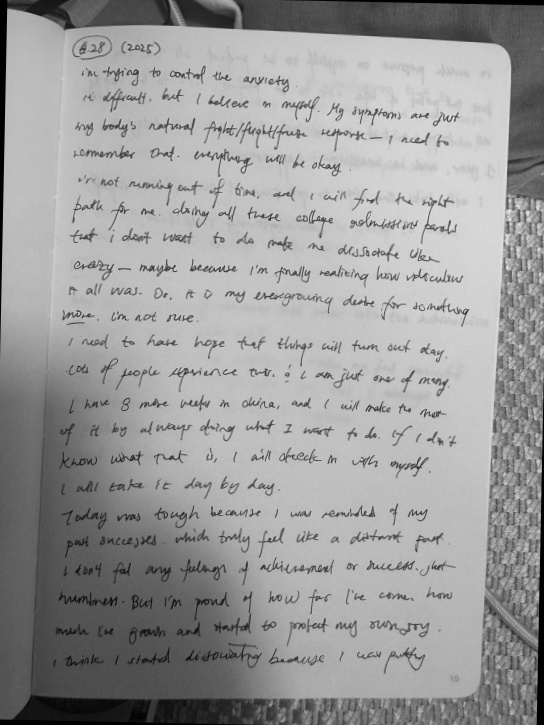 6.28 (2025)
i'm trying to control the anxiety.
it's difficult. but I believe in myself. My symptoms are just
my body's natural fight/flight/freeze response — I need to
remember that. everything will be okay.
I'm not running out of time, and I will find the right
path for me. doing all these college admissions panels
that i don't want to do make me dissociate like
crazy — maybe because I'm finally realizing how ridiculous
it all was. Or, it is my evergrowing desire for something
more. i'm not sure.
I need to have hope that things will turn out okay.
Lots of people experience this. I am just one of many.
I have 8 more weeks in china, and I will make the most
of it by always doing what I want to do. if I don't
know what that is, I will check in with myself.
I will take it day by day.
Today was tough because I was reminded of my
past successes. which truly feel like a distant past.
I don't feel any feelings of achievement or success. just
numbness. But I'm proud of how far I've come. how
much I've grown and started to protect my own joy.
I think I started dissociating because I was putting
15